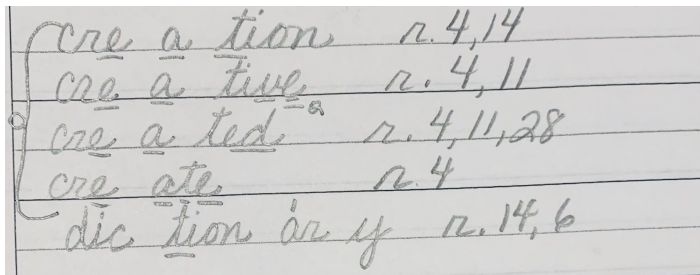 cre a tion r. 4, 14
cre a tive₂ r. 4, 11
cre a ted r. 4, 11, 28
cre ate r. 4
dic tion ar y r. 14, 6